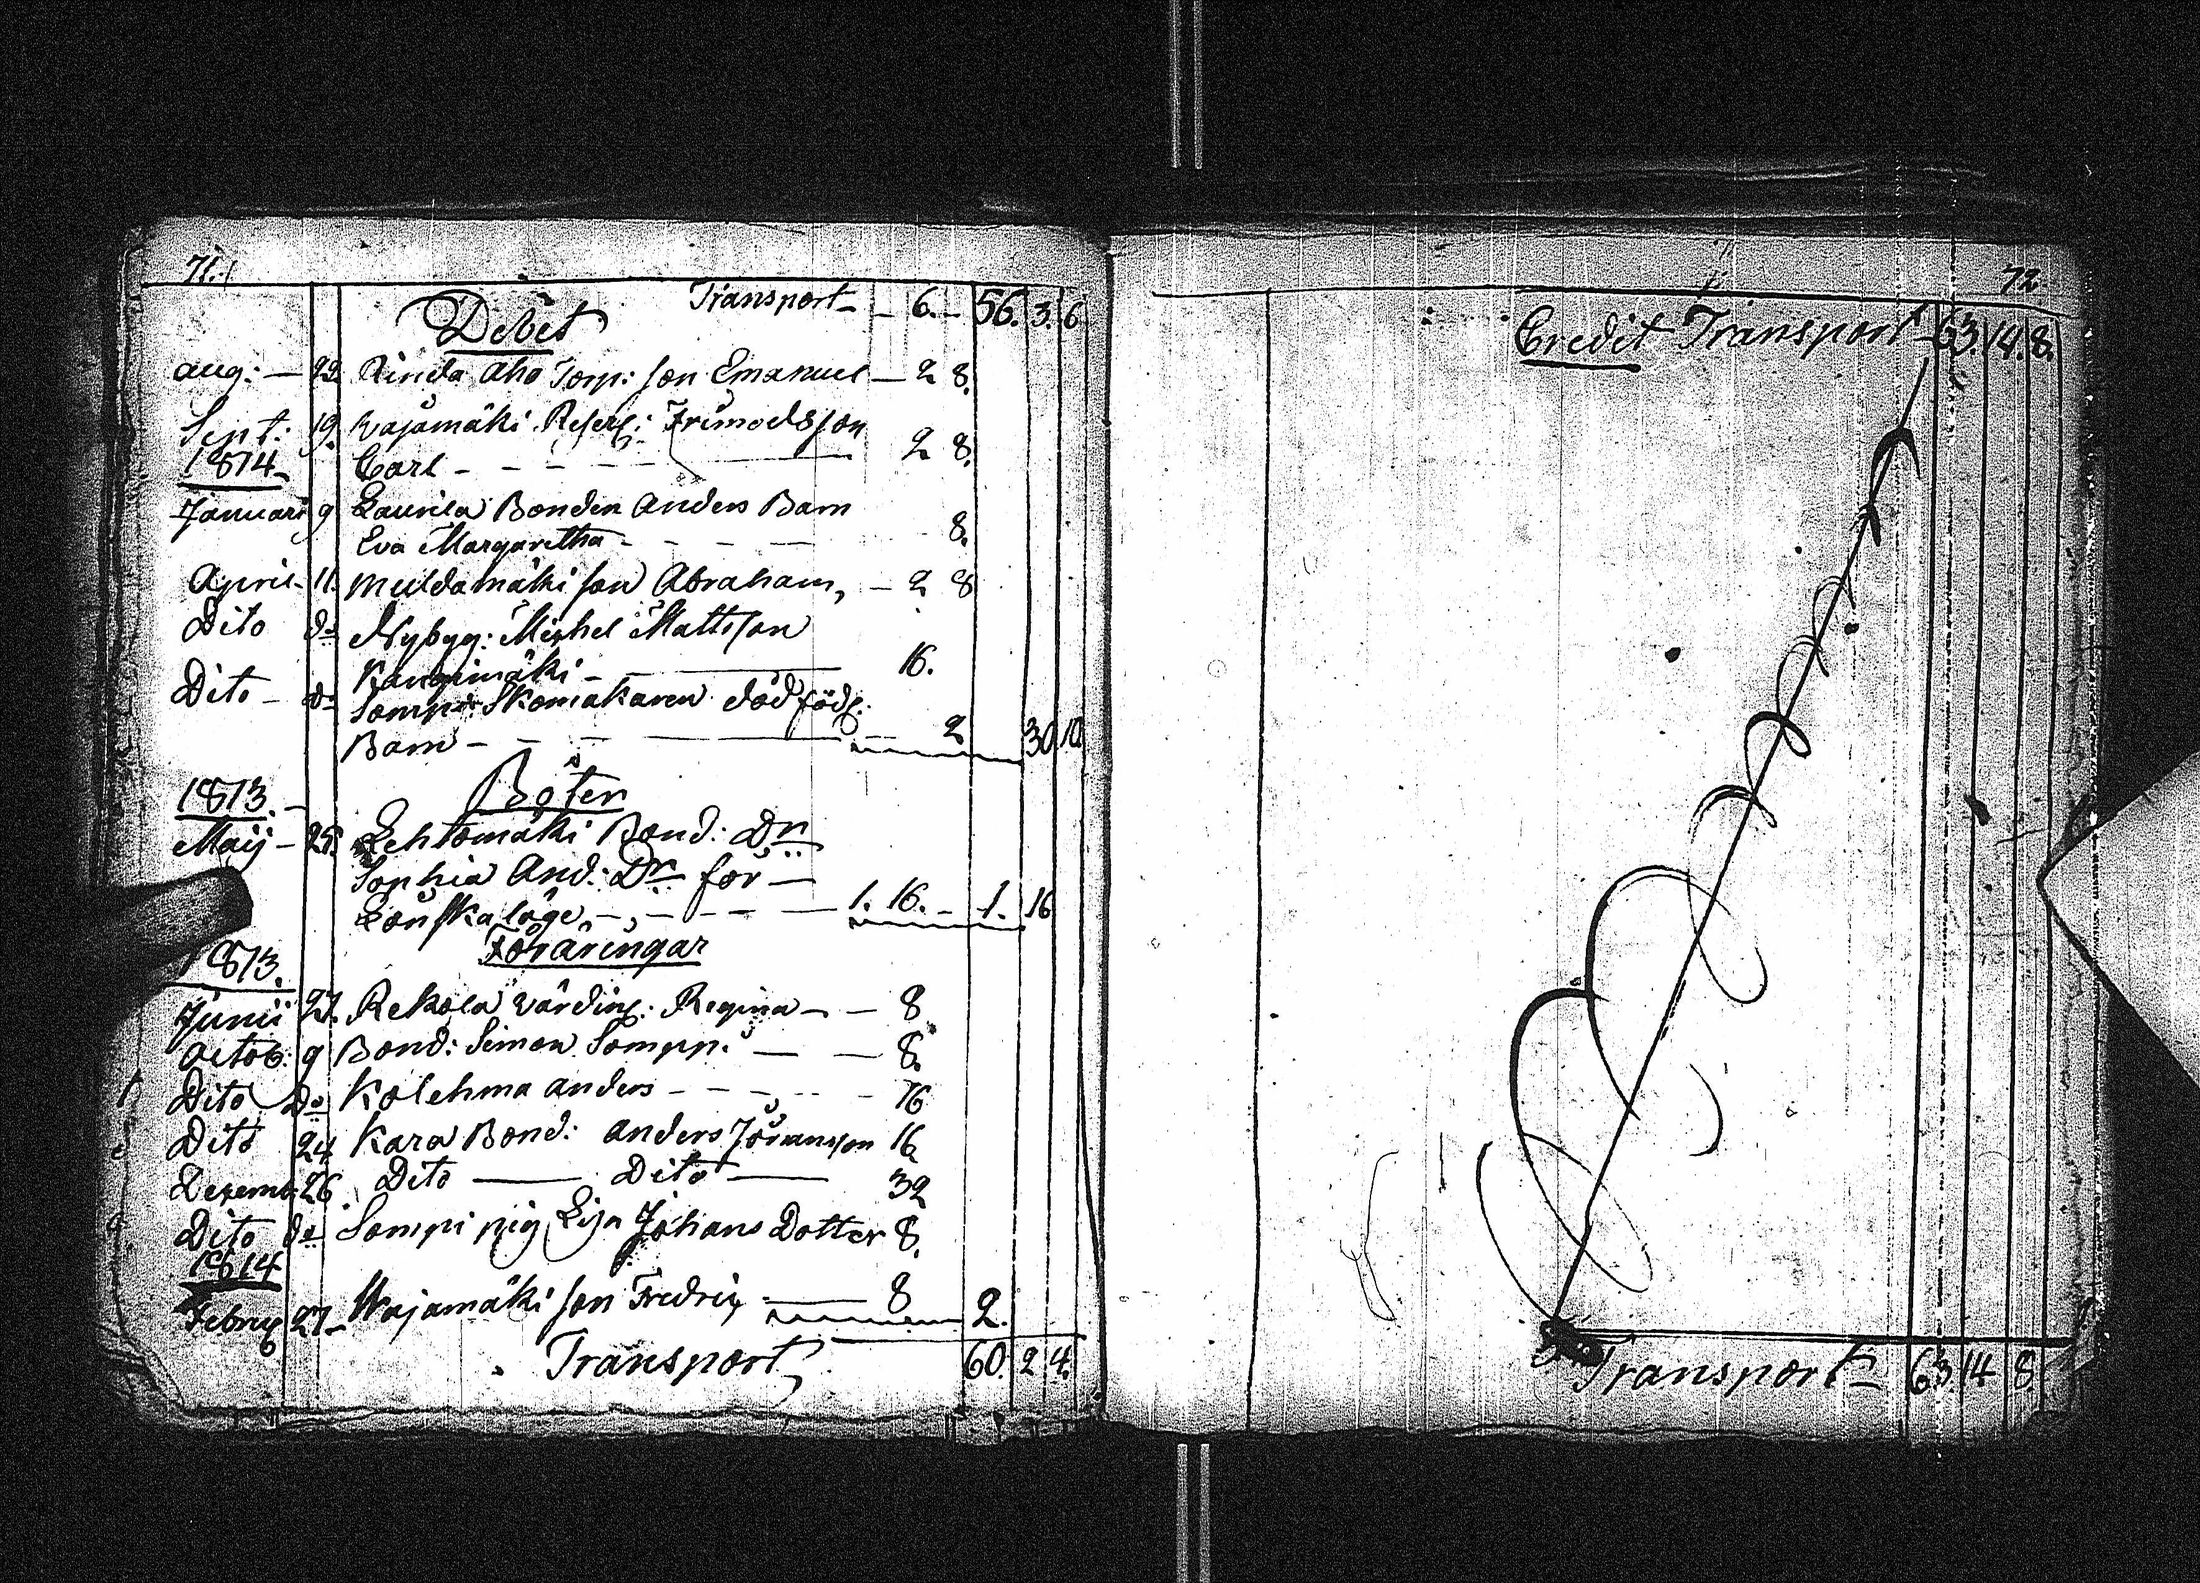 71.
Debet Transport - 6. - 56. 3. 6
Aug: - 22. Rinda Aho Torp: son Emanuel - 2 8.
Sept: 19. Wajamäki Reserf:
1814 Carl - - - - 2 8.
Januari 9 Laurila Bonden Anders Barn
Eva Margaretha - - - 8.
April - 11. Muldamäki son Abraham, - 2 8
Dito do Nybyg: Michel Mattsson
Kangimäki - 16.
Dito - do Sompi: Skomakaren död född:
Barn - - - 2 30 10
1813. - Böter
Maij - 25. Lehtomäki Bond: Dr
Sophia And: Dr för -
Lönskaläge, - - - 1. 16. - 1. 16
1813. Föräringar
Junii 27. Rekola Värdinf: Regina - - 8
Octob: 9 Bond: Simon Sompi. - - 8.
Dito Do Kolehma Anders - - - 16
Dito 24 Kara Bond: Anders Jöransson 16
Dezemb 26 Dito - Dito - 32
Dito do Sompi pig Lisa Johans Dotter 8.
1814
Febru 27 - Wajamäki son Fredrik - 8 2.
Transport 60. 2 4.
72.
Credit Transport - 63. 14. 8.
Transport - 63. 14 8